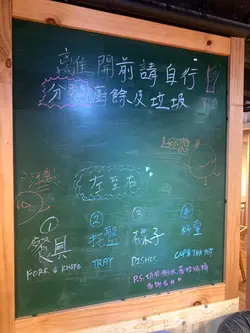 離開前請自行
分類廚餘及垃圾
LOOK
注意
左至右
① ② ③ ④
餐具 托盤 碟子 杯壺
FORK & KNIFE TRAY DISHES CUP & TEA POT